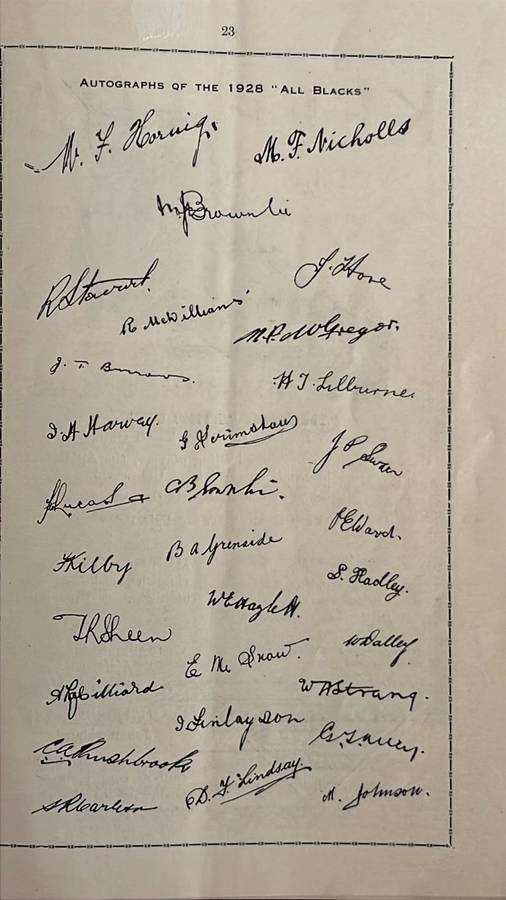 23
AUTOGRAPHS OF THE 1928 "ALL BLACKS"
W. F. Hornig.
M. F. Nicholls
M J Brownlie
R Stewart.
J. Hore
R McWilliams
N. P. McGregor.
J. T. Burrows.
H T Lilburne.
I H Harvey.
G Scrimshaw
J P Swain
F Lucas
C Brownlie.
P E Ward.
F Kilby
B A Grenside
S. Hadley.
W E Hazlett.
T R Sheen
W Dalley
E M. Snow.
A L Lilliard
W A Strang.
I Finlayson
G. T. Alley.
C A Rushbrook
D. F. Lindsay.
S R Carleton
M. Johnson.